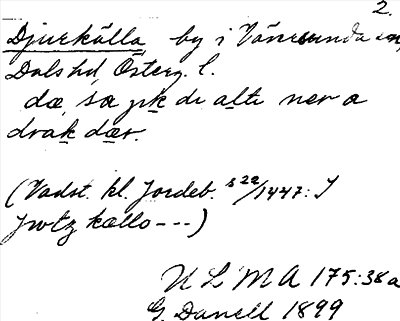 2.
Djurkälla, by i Vänersunda sn,
Dals hd Österg. l.
dæ, sa jık de alte ner a
drak dær.
(Vadst. kl. Jordeb. s 22/1447: J
jwtz kællo ---)
ULMA 175:38a
G. Danell 1899